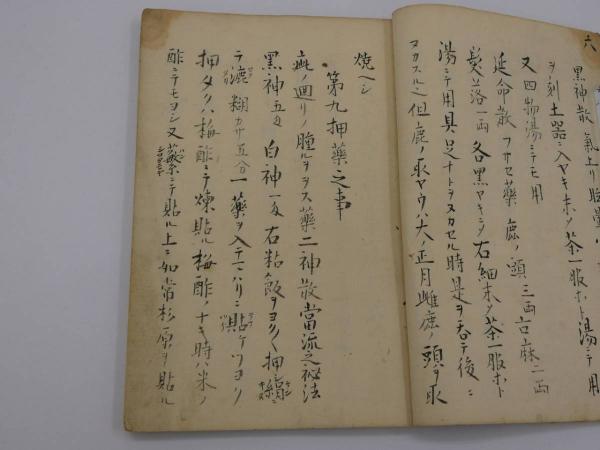 六
黒神散 氣上リ眩暈ノ
ヲ刻土器ニ入ヤキ末メ茶一服ホト湯ニテ用
又四物湯ニテモ用
延命散 フサセ薬 鹿ノ頭三両 古麻二両
髪落一両 各黒ヤキシテ右細末メ茶一服ホト
湯ニテ用具足ナトヲヌカセル時是ヲ呑テ後ニ
ヌカスル也但鹿ノ取ヤウハ大ノ正月雌鹿ノ頭ヲ取
焼ヘシ
第九押薬之事
疵ノ廻リノ腫ルヲヲス薬二神散當流之祕法
黒神五匁 白神一匁 右粘飯ヲヨク〱押續
テ漉糊カサ五分一薬ヲ入テ ニ貼ケツヨク
押タクハ梅酢ニテ煉貼ル梅酢ノナキ時ハ米ノ
酢ニテモヨシ又 ニテ貼ル上ニ如常杉原ヲ貼ル